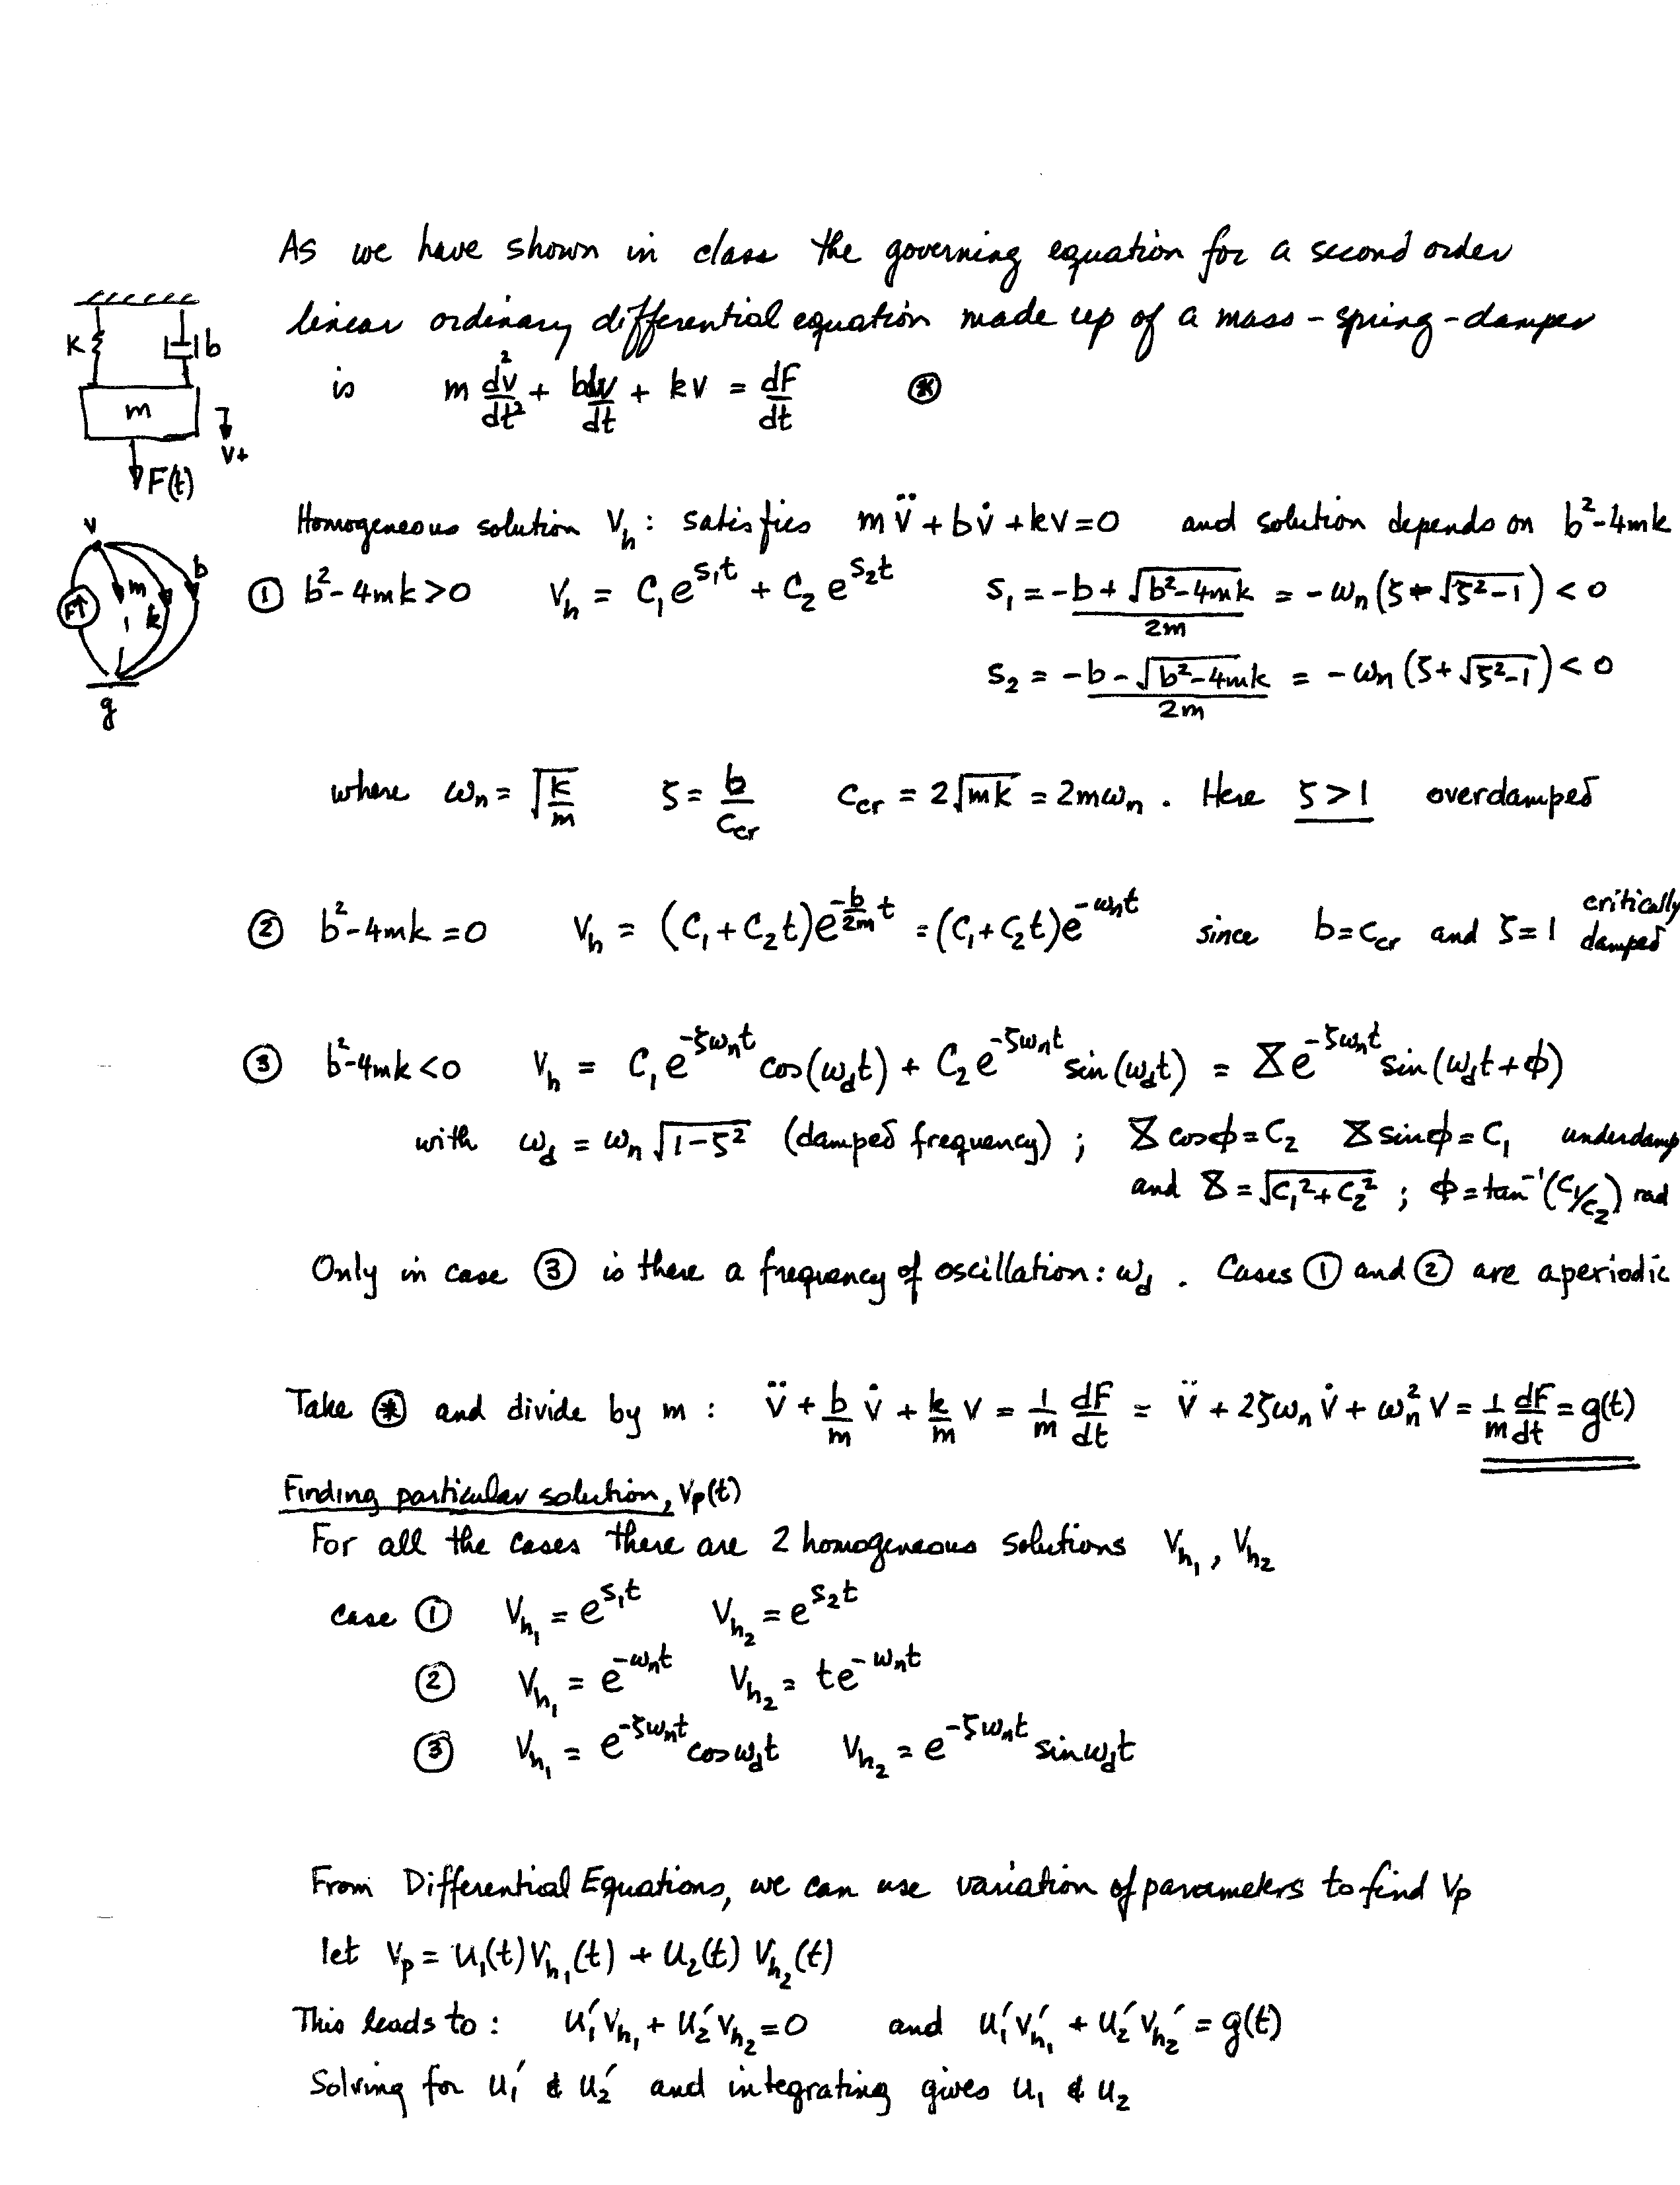 As we have shown in class the governing equation for a second order
linear ordinary differential equation made up of a mass-spring-damper
is m d²v/dt² + b dv/dt + kv = dF/dt ⊛
K b
m
v+
F(t)
v
F↑ m k b
g
Homogeneous solution V_h: satisfies m v̈ + b v̇ + kv = 0 and solution depends on b²-4mk
① b²-4mk>0 V_h = C₁e^{s₁t} + C₂e^{s₂t} s₁ = (-b+√(b²-4mk))/2m = -ωn(ζ-√(ζ²-1)) < 0
s₂ = (-b-√(b²-4mk))/2m = -ωn(ζ+√(ζ²-1)) < 0
where ωn = √(k/m) ζ = b/Ccr Ccr = 2√(mk) = 2mωn . Here ζ>1 overdamped
② b²-4mk=0 V_h = (C₁+C₂t)e^{-b/2m t} = (C₁+C₂t)e^{-ωnt} since b=Ccr and ζ=1 critically damped
③ b²-4mk<0 V_h = C₁e^{-ζωnt}cos(ωdt) + C₂e^{-ζωnt}sin(ωdt) = X e^{-ζωnt}sin(ωdt+φ)
with ωd = ωn√(1-ζ²) (damped frequency) ; X cosφ=C₂ X sinφ=C₁ underdamp
and X = √(C₁²+C₂²) ; φ=tan⁻¹(C₁/C₂) rad
Only in case ③ is there a frequency of oscillation: ωd . Cases ① and ② are aperiodic
Take ⊛ and divide by m : v̈ + b/m v̇ + k/m v = 1/m dF/dt = v̈ + 2ζωn v̇ + ωn² v = 1/m dF/dt = g(t)
Finding particular solution, Vp(t)
For all the cases there are 2 homogeneous solutions V_h₁, V_h₂
case ① V_h₁ = e^{s₁t} V_h₂ = e^{s₂t}
② V_h₁ = e^{-ωnt} V_h₂ = te^{-ωnt}
③ V_h₁ = e^{-ζωnt}cosωdt V_h₂ = e^{-ζωnt}sinωdt
From Differential Equations, we can use variation of parameters to find Vp
let Vp = u₁(t)V_h₁(t) + u₂(t)V_h₂(t)
This leads to: u₁'V_h₁ + u₂'V_h₂ = 0 and u₁'V_h₁' + u₂'V_h₂' = g(t)
Solving for u₁' & u₂' and integrating gives u₁ & u₂